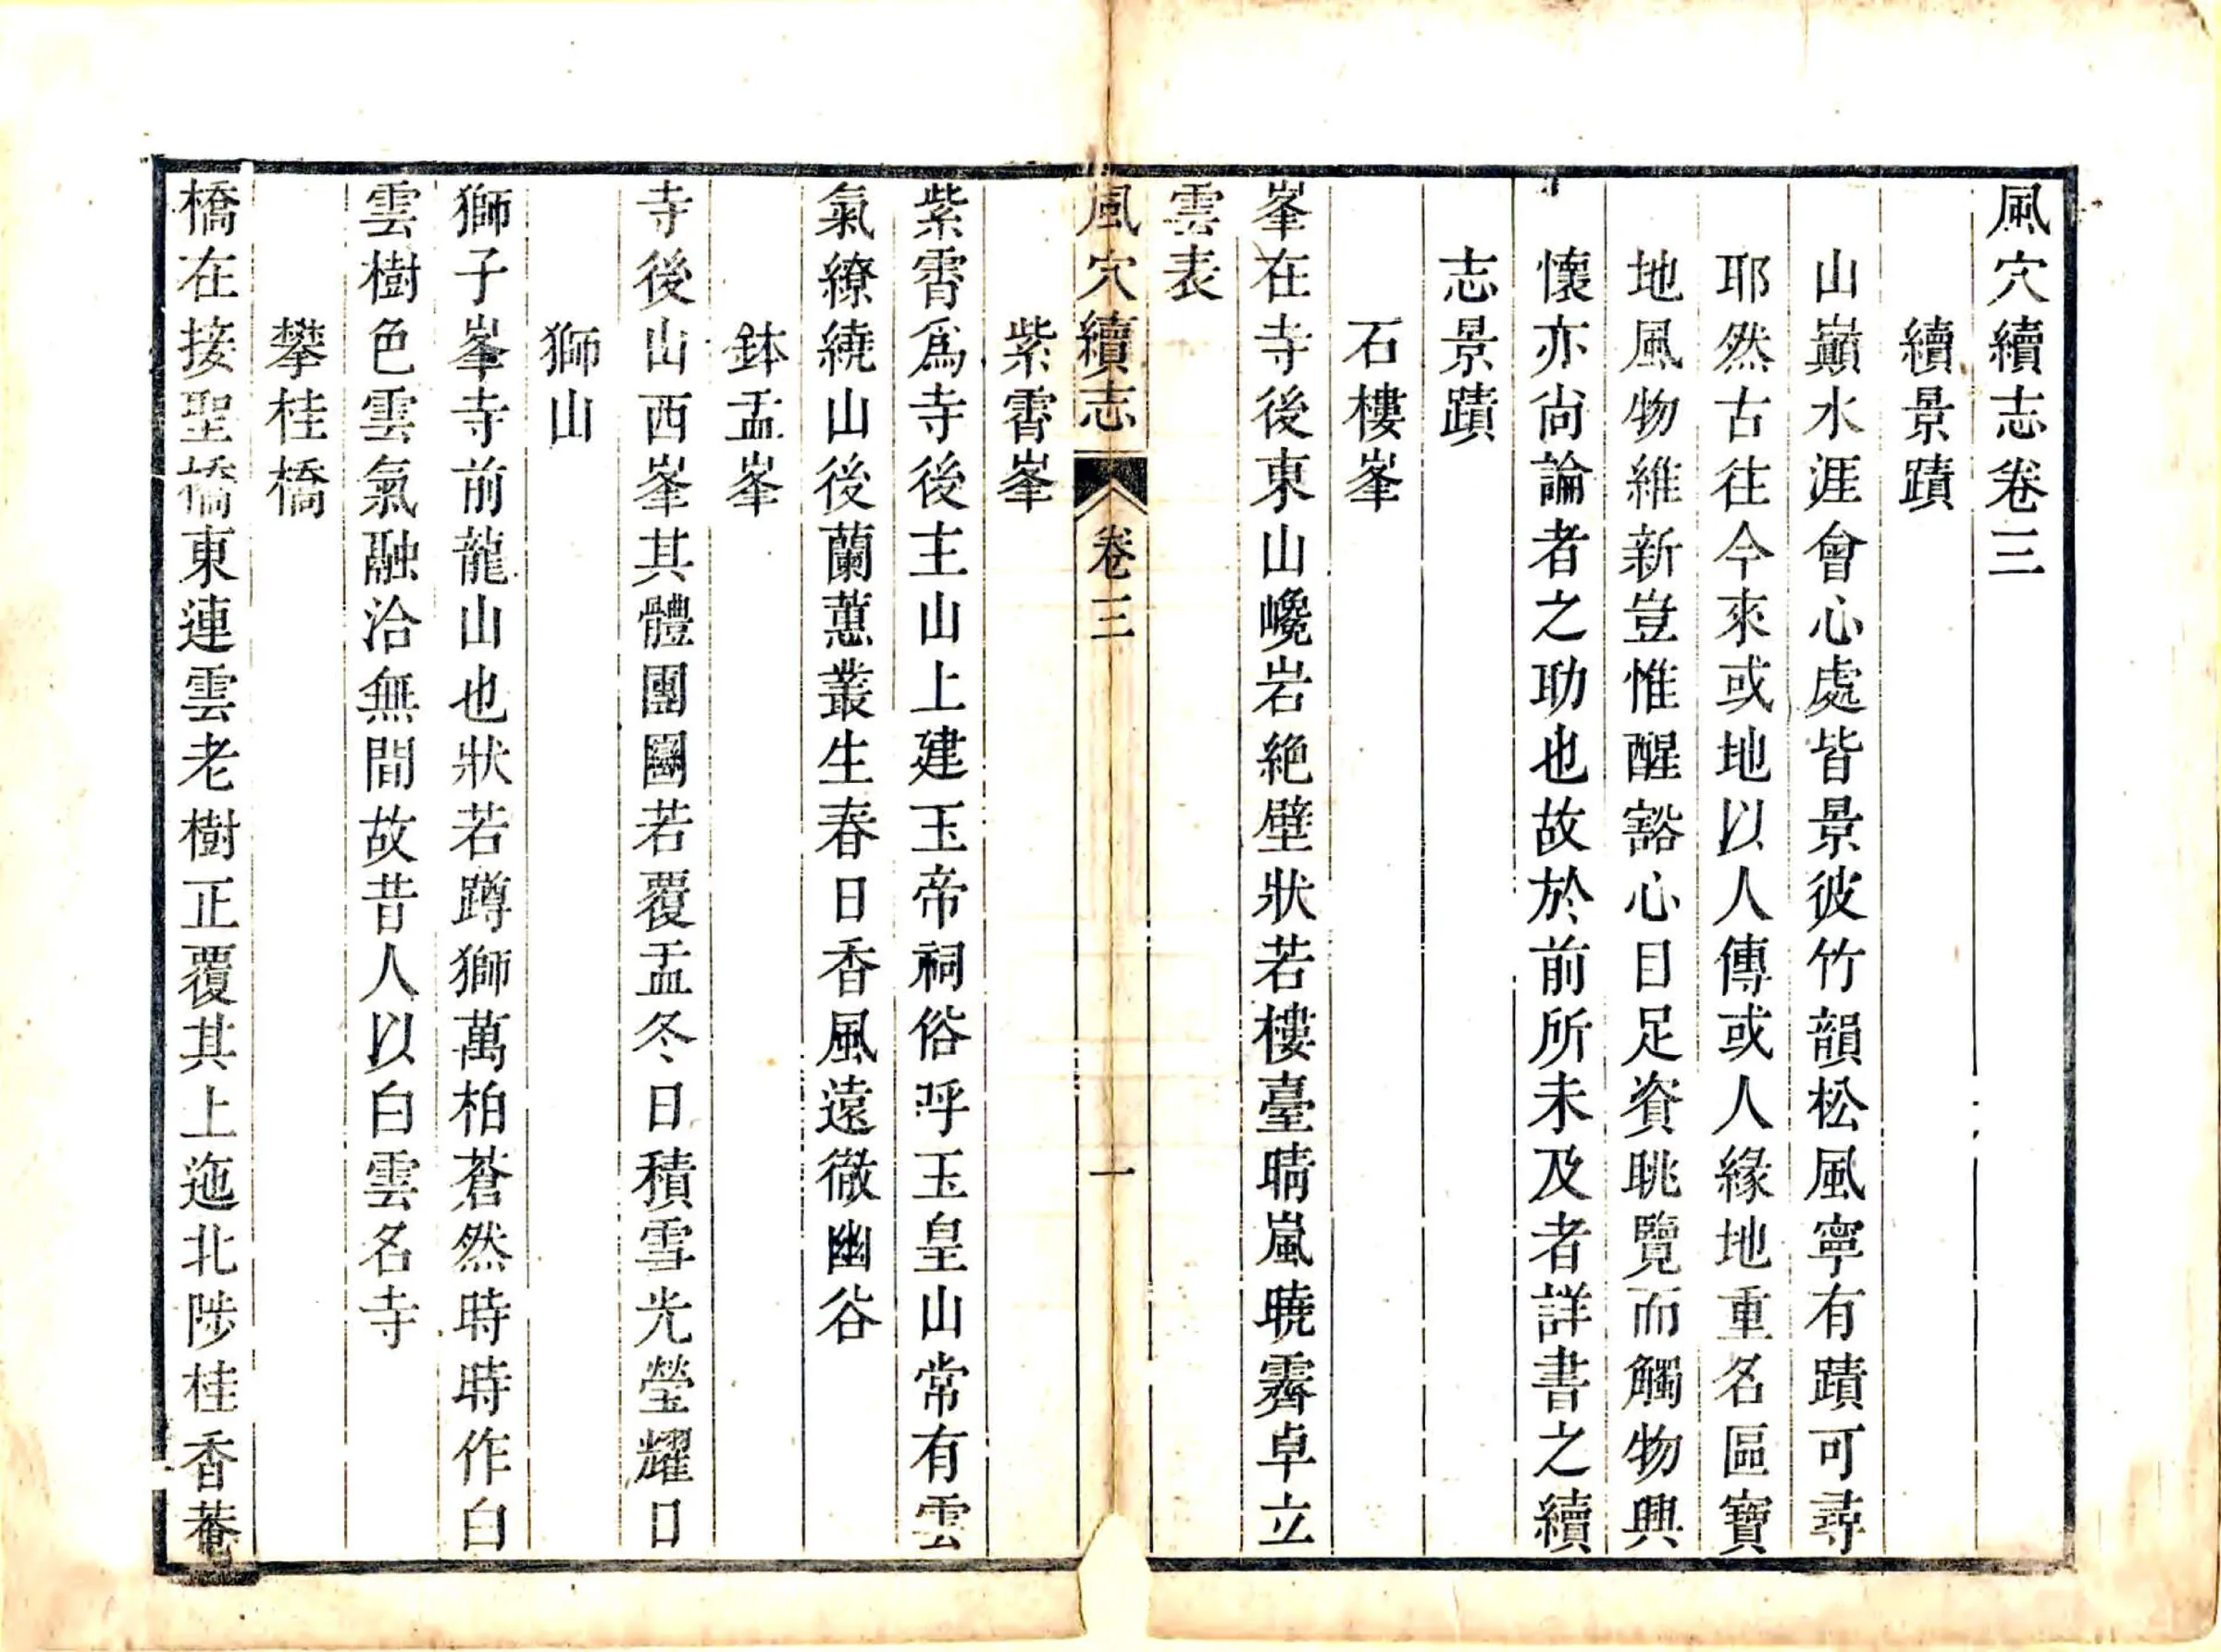 風穴續志卷三
續景蹟
山巔水涯會心處皆景彼竹韻松風寧有蹟可尋
耶然古往今來或地以人傳或人緣地重名區寶
地風物維新豈惟醒豁心目足資眺覽而觸物興
懷亦尚論者之助也故於前所未及者詳書之續
志景蹟
石樓峯
峯在寺後東山巉岩絶壁狀若樓臺晴嵐曉霽卓立
雲表
風穴續志
卷三
一
紫霄峯
紫霄爲寺後主山上建玉帝祠俗呼玉皇山常有雲
氣繚繞山後蘭蕙叢生春日香風遠徹幽谷
鉢盂峯
寺後山西峯其體團圞若覆盂冬日積雪光瑩耀日
獅山
獅子峯寺前龍山也狀若蹲獅萬柏蒼然時時作白
雲樹色雲氣融洽無間故昔人以白雲名寺
攀桂橋
橋在接聖橋東連雲老樹正覆其上迤北陟桂香菴